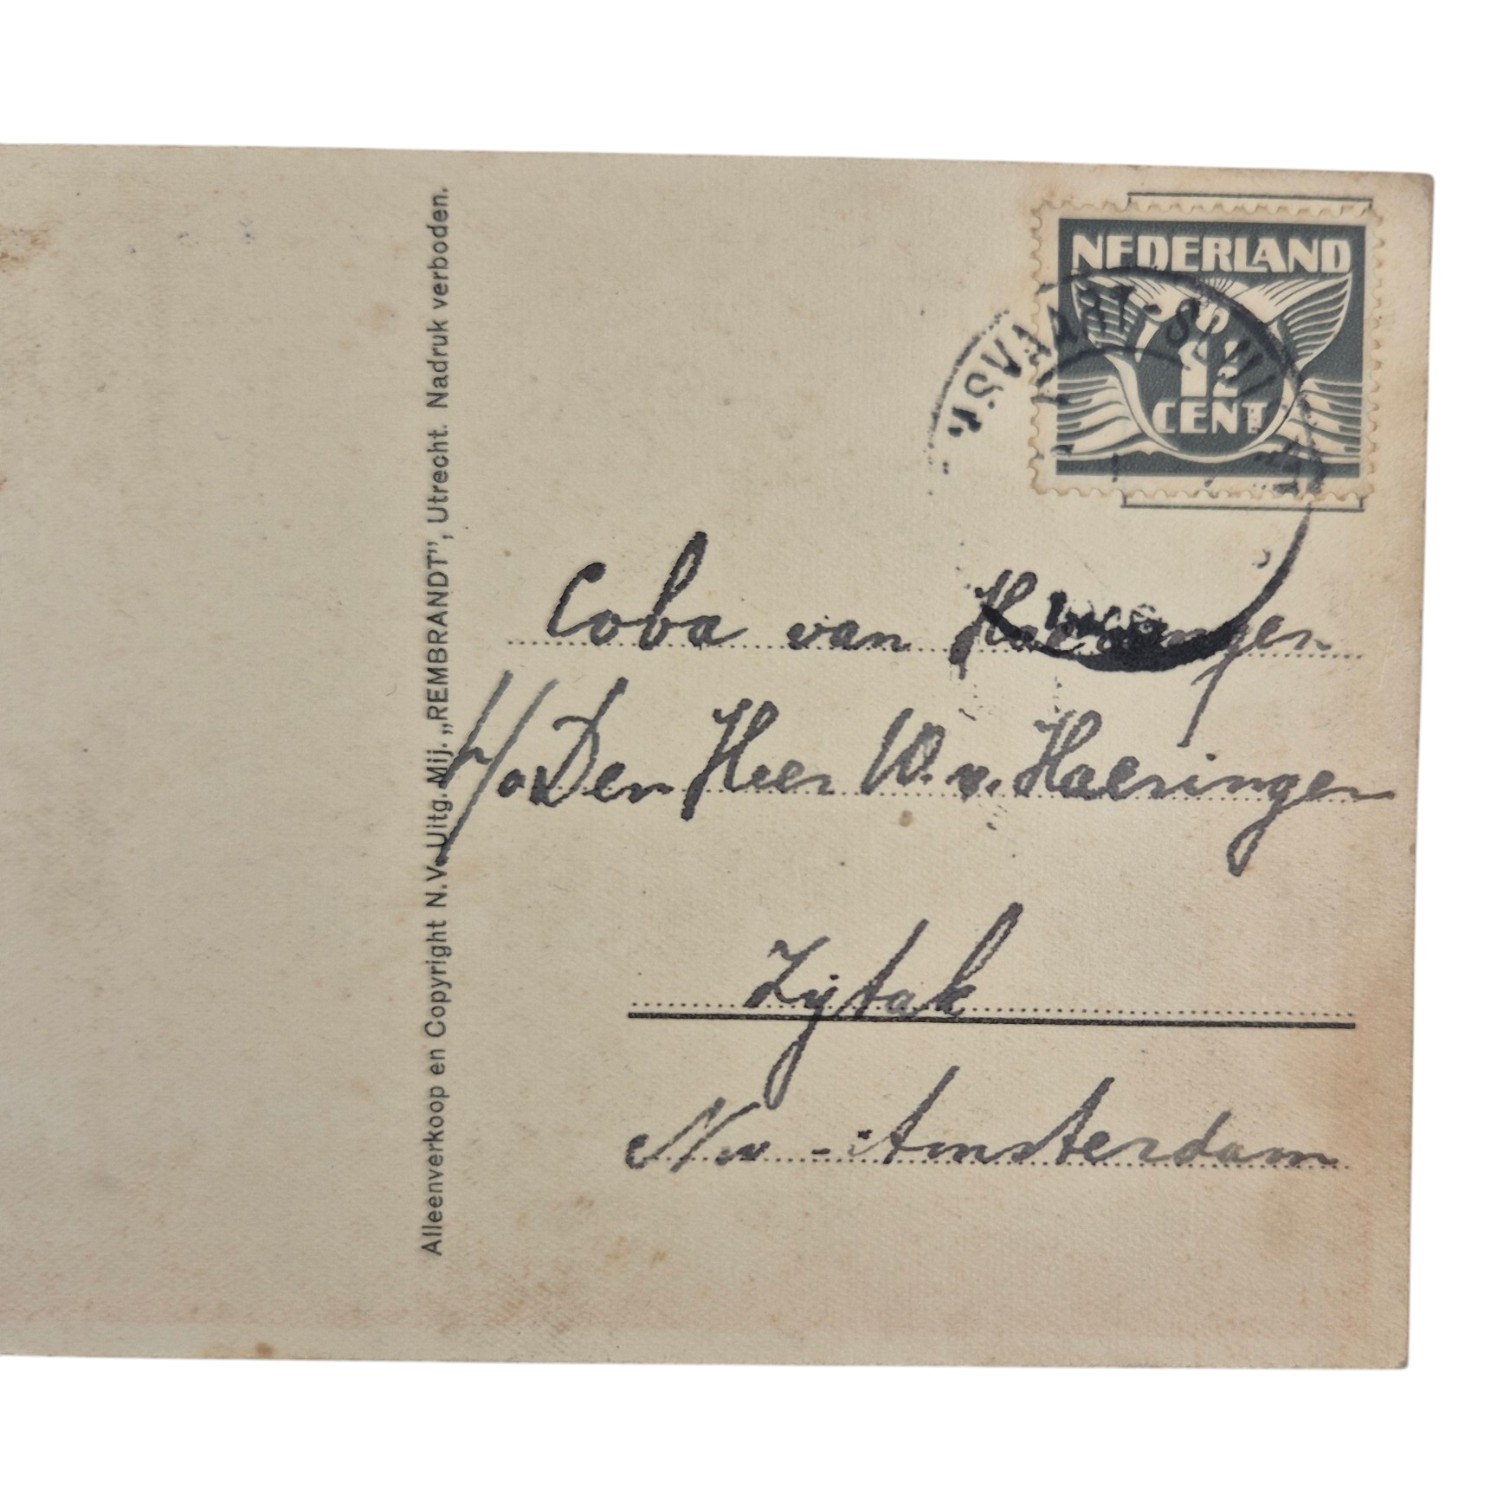 NEDERLAND
1½
CENT
Coba van Haeringen
p/o Den Heer W. v. Haeringen
Zijtak
Nw - Amsterdam
Alleenverkoop en Copyright N.V. Uitg. Mij. „REMBRANDT”, Utrecht. Nadruk verboden.